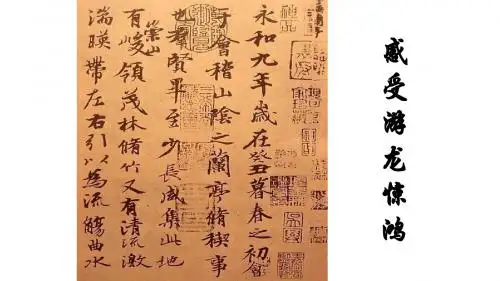 感受游龙惊鸿
永和九年歲在癸丑暮春之初會
于會稽山陰之蘭亭脩稧事
也羣賢畢至少長咸集此地
有崇山峻領茂林脩竹又有清流激
湍暎帶左右引以為流觴曲水